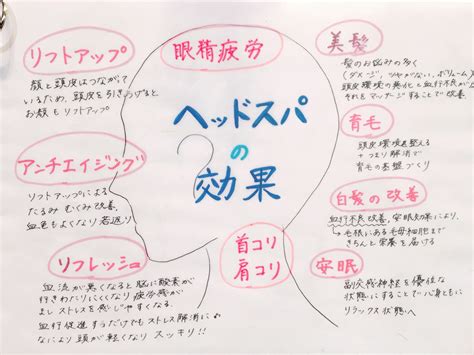 リフトアップ
顔と頭皮はつながって
いるため、頭皮を引きあげると
お顔もリフトアップ
アンチエイジング
リフトアップによる
たるみ むくみ改善、
血色もよくなり 若返り
リフレッシュ
血流が悪くなると脳に酸素が
行きわたりにくくなり疲労感が
まし ストレスを感じやすくなる。
血行促進するだけでもストレス解消に
なにより頭が軽くなり スッキリ!!
眼精疲労
ヘッドスパ
の
効果
首コリ
肩コリ
美髪
髪のお悩みの多く
(ダメージ、ツヤがない、ボリューム
頭皮環境の悪化と血行不良が
それをマッサージすることで改善
育毛
頭皮環境を整える
+コリ解消で
育毛の基盤づくり
白髪の改善
血行不良改善、安眠効果により、
毛根にある毛母細胞まで
きちんと栄養を届ける
安眠
副交感神経を優位な
状態にすることで心身ともに
リラックス状態へ